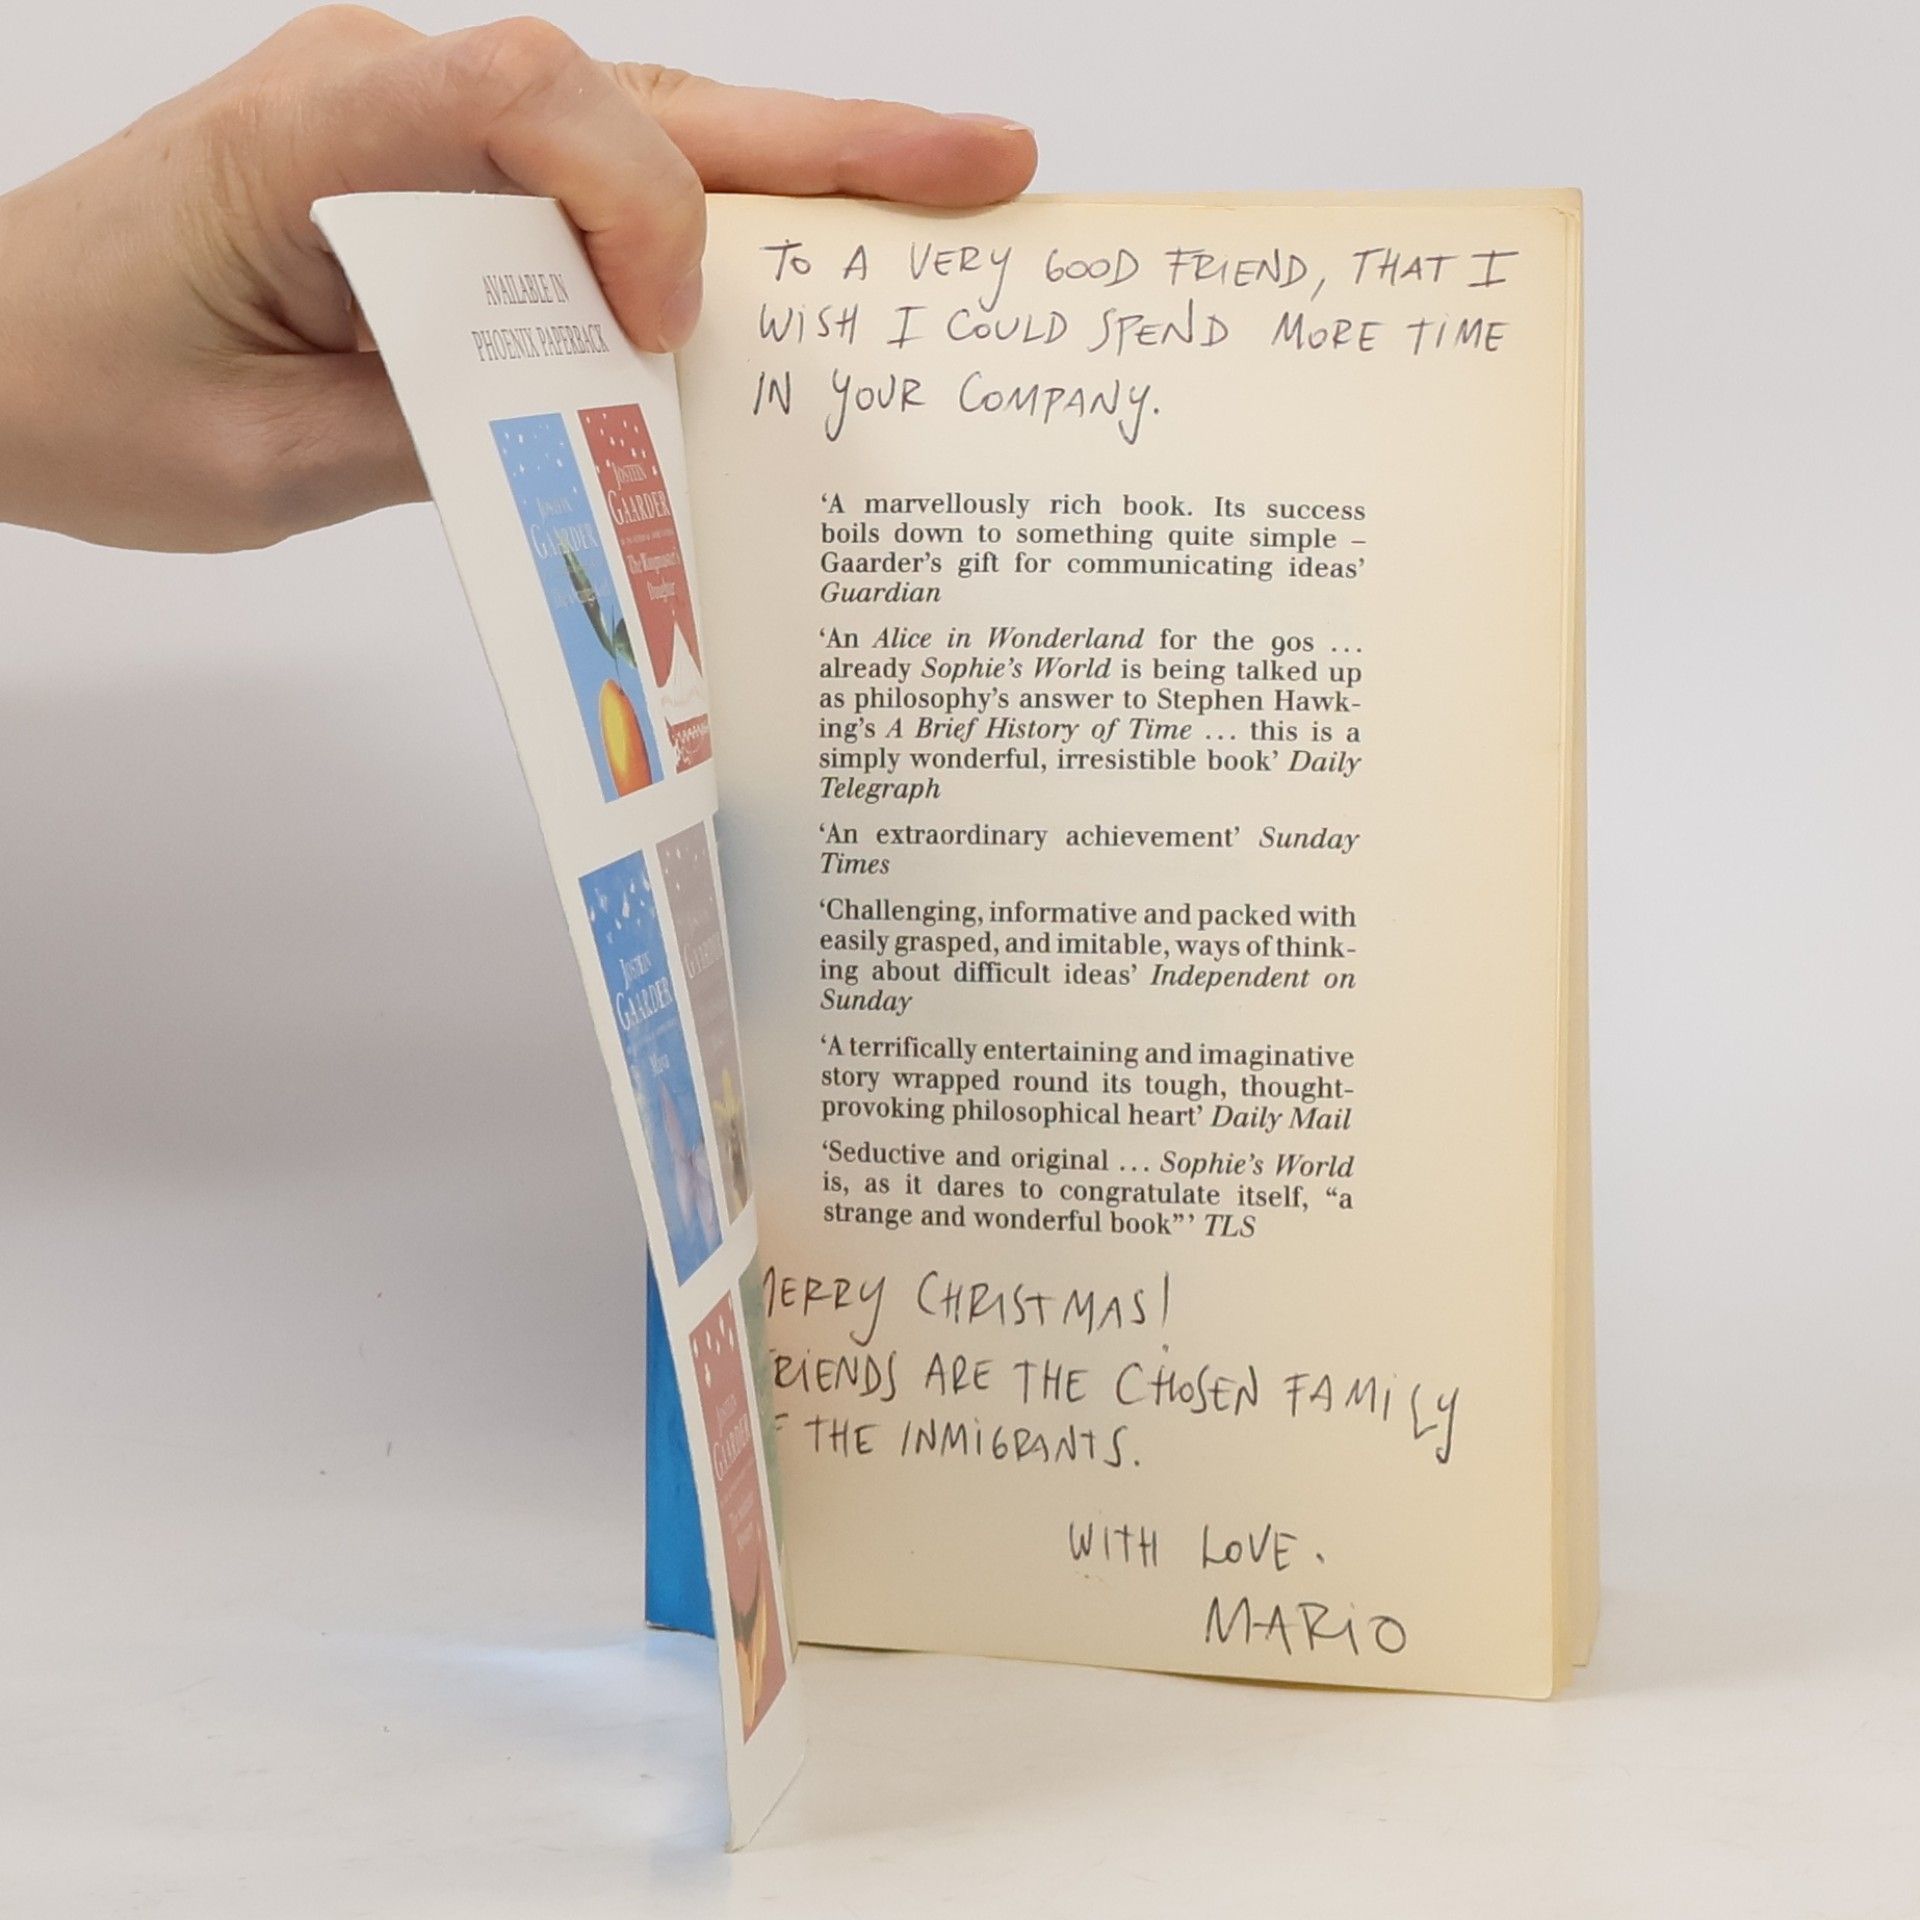 AVAILABLE IN
PHOENIX PAPERBACK
JOSTEIN
GAARDER
JOSTEIN
GAARDER
The Ringmaster's
Daughter
JOSTEIN
GAARDER
Maya
GAARDER
JOSTEIN
GAARDER
TO A VERY GOOD FRIEND, THAT I
WISH I COULD SPEND MORE TIME
IN YOUR COMPANY.
‘A marvellously rich book. Its success
boils down to something quite simple –
Gaarder’s gift for communicating ideas’
Guardian
‘An Alice in Wonderland for the 90s ...
already Sophie’s World is being talked up
as philosophy’s answer to Stephen Hawk-
ing’s A Brief History of Time ... this is a
simply wonderful, irresistible book’ Daily
Telegraph
‘An extraordinary achievement’ Sunday
Times
‘Challenging, informative and packed with
easily grasped, and imitable, ways of think-
ing about difficult ideas’ Independent on
Sunday
‘A terrifically entertaining and imaginative
story wrapped round its tough, thought-
provoking philosophical heart’ Daily Mail
‘Seductive and original ... Sophie’s World
is, as it dares to congratulate itself, “a
strange and wonderful book”’ TLS
MERRY CHRISTMAS!
RIENDS ARE THE CHOSEN FAMILY
F THE INMIGRANTS.
WITH LOVE.
MARIO